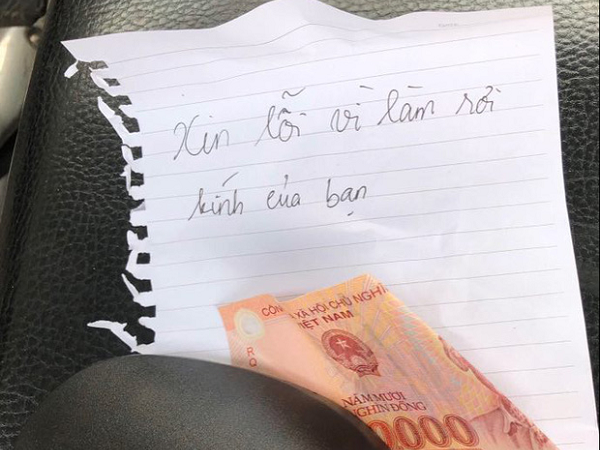 Xin lỗi vì làm rơi
kính của bạn
CỘN
XÃ HỘI CHỦ NGHĨ
VIỆT NAM
NĂM MƯƠI
NGHÌN ĐỒNG
0000